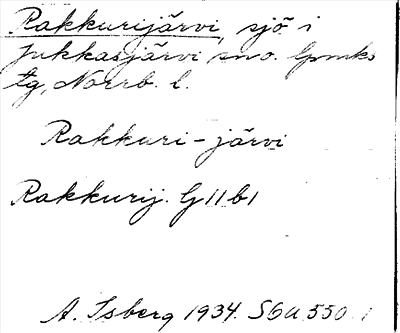 Rakkurijärvi, sjö i
Jukkasjärvi sno. Lpmks
tg, Norrb. l.
Rakkuri-järvi
Rakkurij. G 11 b 1
A. Isberg 1934. S6A 550